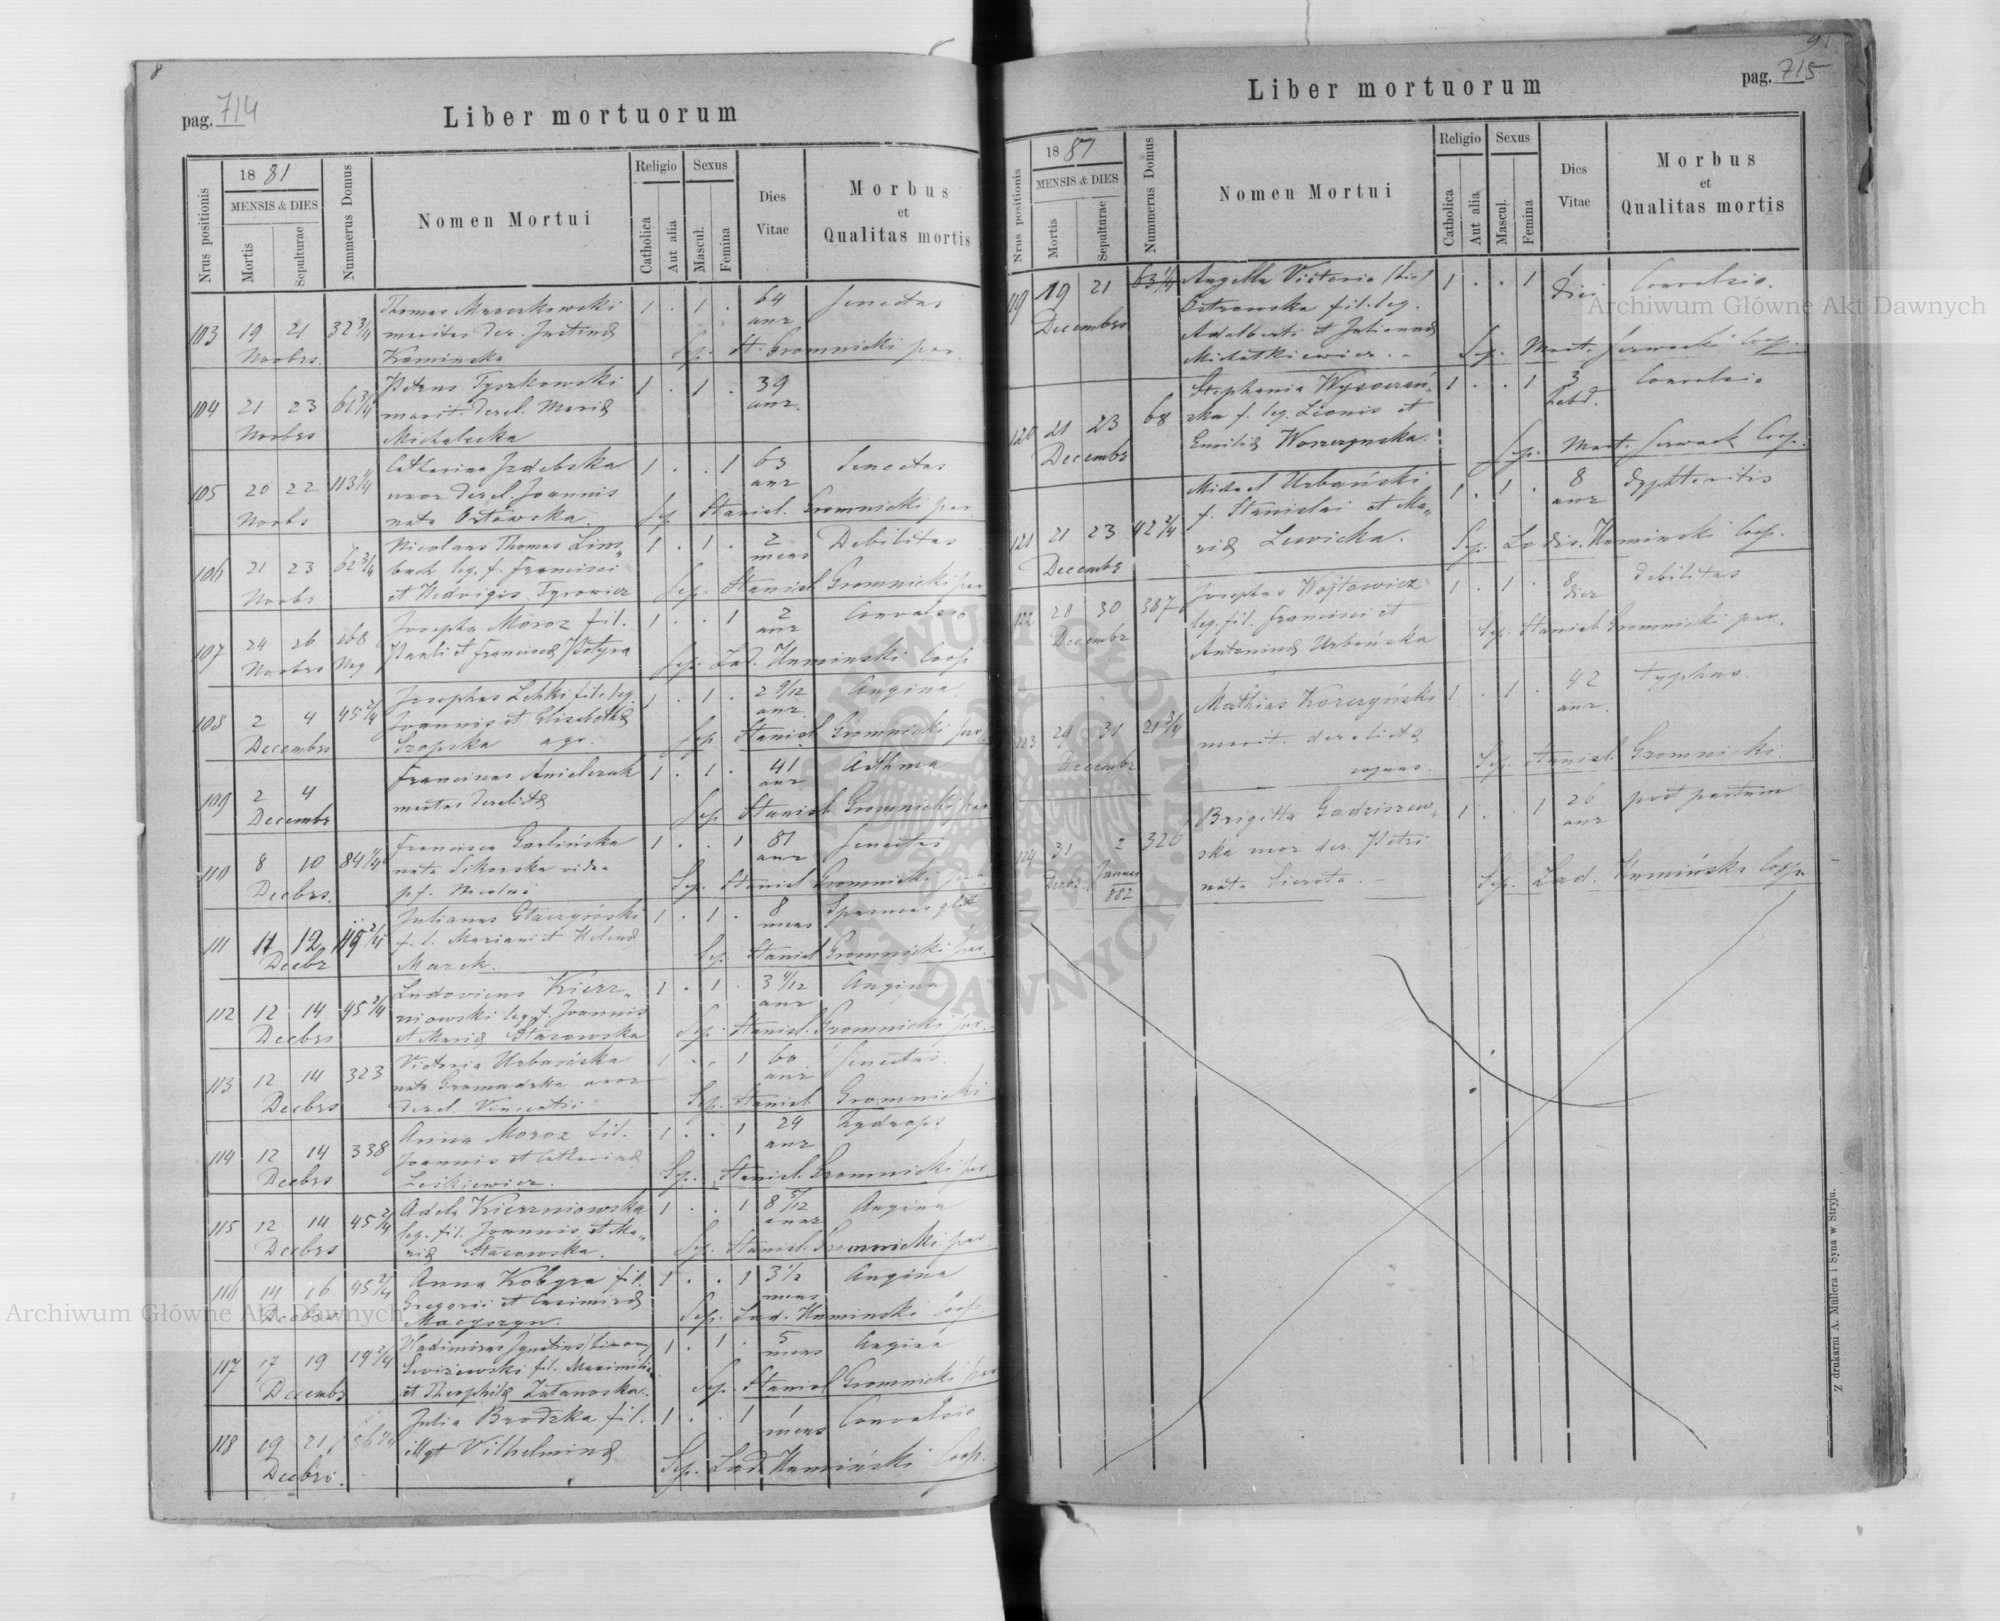 8
pag. 714
Liber mortuorum
Nrus positionis
18 81
MENSIS & DIES
Mortis
Sepulturae
Nummerus Domus
Nomen Mortui
Religio
Catholica
Aut alia
Sexus
Mascul.
Femina
Dies
Vitae
Morbus
et
Qualitas mortis
103 19 21 32 3/4 Thomas 1 . 1 . 64 Senectus
Novbrs. maritus der. Justinae anr
Kaminska Sep. St. Gromnicki par.
104 21 23 61 3/4 Petrus Tyszkowski 1 . 1 . 39
Novbrs marit. derel. Mariae anr.
Michalecka
105 20 22 113 1/4 Catharina Izdebska 1 . . 1 63 Senectus
Novbs uxor derel. Joannis anr
nata Sep. Stanisl. Gromnicki par.
106 21 23 62 3/4 Nicolaus Thomas Lim„ 1 . 1 . 2 Debilitas
Novbs bach leg. f. Francisci mens
et Hedvigis Tyrowicz Sep. Stanisl. Gromnicki par
107 24 26 168 Josepha Moroz fil. 1 . . 1 2 Convulsio
Novbrs Pauli et Franciscae anr
Sep. Lad. Kuminski Coop
108 2 4 45 2/4 Josephus fil. leg. 1 . 1 . 2 9/12 Angina
Decembrs Joannis et Elisabethae anr
Szopska agr. Sep. Stanisl. Gromnicki par.
109 2 4 Franciscus 1 . 1 . 41 Asthma
Decembr derelictae anr
Sep. Stanisl. Gromnicki par
110 8 10 84 1/4 Francisca Garlińska 1 . . 1 81 Senectus
Decbrs. nata Sikorska vidua anr
p. f. Nicolai Sep. Stanisl. Gromnicki
111 11 12 49 2/4 Julianus 1 . 1 . 8 Spasmus
Decbr f. l. Mariani et Helenae mens
Marek. Sep. Stanisl Gromnicki par.
112 12 14 45 2/4 Ludovicus Kierz„ 1 . 1 . 3 4/12 Angina
Decbrs niowski leg. f. Joannis anr
et Mariae Stasowska Sep. Stanisl. Gromnicki par.
113 12 14 323 Victoria Urbańska 1 . . 1 60 Senectus.
Decbrs nata Gromadzka uxor anr
derel Vincentii Sep. Stanisl. Gromnicki
114 12 14 338 Anna Moroz fil. 1 . . 1 24 hydrops
Decbrs Joannis et Catharinae anr
Leśkiewicz. Sep. Stanisl. Gromnicki par
115 12 14 45 2/4 Adela Kierzniowska 1 . . 1 8 5/12 Angina
Decbrs leg. fil. Joannis et Ma„ annr
riae Stasowska. Sep. Stanisl. Gromnicki par
116 14 16 45 2/4 Anna Kobyra fil. 1 . . 1 3 1/2 Angina
Decbrs Gregorii et Casimirae mens
Sep. Lad. Kuminski Coop.
117 17 19 19 2/4 Vladimirus Ignatius 1 . 1 . 5 Angina
Decembr fil. Maximil. mens
et Theophilae Sep. Stanisl Gromnicki par
118 19 21 56 Julia Brodzka fil. 1 . . 1 1 Convulsio
Decbrs. illgt Vilhelminae mens
Sep. Lad. Kumiński Coop.
9
pag. 715
Liber mortuorum
Nrus positionis
18 81
MENSIS & DIES
Mortis
Sepulturae
Nummerus Domus
Nomen Mortui
Religio
Catholica
Aut alia
Sexus
Mascul.
Femina
Dies
Vitae
Morbus
et
Qualitas mortis
119 19 21 63 1/4 Angella Victoria 1 . . 1 1 Convulsio.
Decembrs Ostrowska fil. leg. diei
Adalberti et Julianna
Sep. Mart. Serwacki Coop.
120 21 23 68 Stephania Wysoczań„ 1 . . 1 3 Convulsio
Decembr ska f. leg. Leonis et hebd.
Emiliae Woszczynska. Sep. Mart. Serwack Coop.
121 21 23 42 2/4 Michael Urbański 1 . 1 . 8 dyphteritis
Decembr f. Stanislai et Ma„ anr
riae Lewicka. Sep. Ladis. Kuminski Coop.
122 28 30 387 Josephus Wojtowicz 1 . 1 . 8 debilitas
Decembr leg. fil. Francisci et dies
Antoninae Urbańska Sep. Stanisl. Gromnicki par.
123 29 31 21 3/4 Mathias Korczyński 1 . 1 . 42 typhus.
Decembr marit. derelictae anr.
Sep. Stanisl. Gromnicki.
124 31 2 326 Brigitta Gadziszew„ 1 . . 1 26 post partum
Decbr. Januar ska uxor der. Petri anr
882 nata Sierota. Sep. Lad. Kumiński Coop.
Z drukarni A. Müllera i Syna w Stryju.
Archiwum Główne Akt Dawnych
Archiwum Główne Akt Dawnych
ARCHIWUM GŁÓWNE AKT DAWNYCH